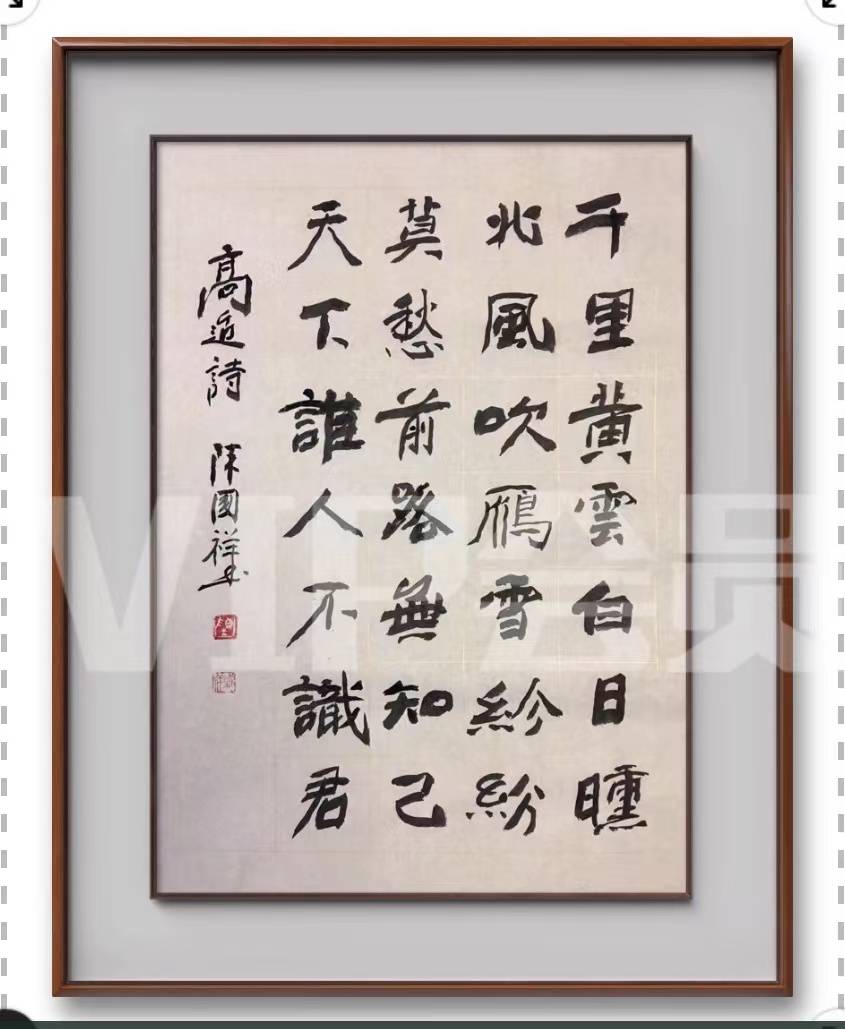 千里黄雲白日曛
北風吹鴈雪紛紛
莫愁前路無知己
天下誰人不識君
高適詩 陳國祥书
VIP会员